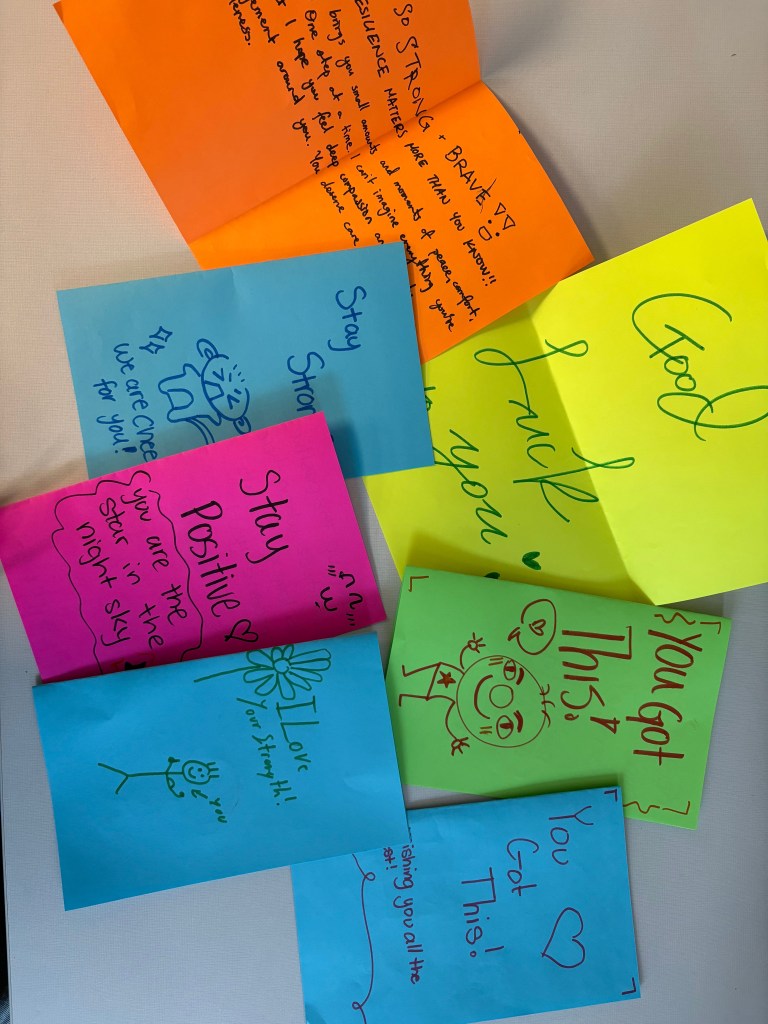 SO STRONG + BRAVE!!
ESILIENCE MATTERS MORE THAN YOU KNOW!!
brings you small amounts and moments of peace, comfort,
One step at a time. I can't imagine everything you're
I hope you feel deep compassion an
ement around you. You deserve care
eness.
Good
Luck
to you
Stay
Stron
we are chee
for you!
Stay
Positive
you are the
star in the
night sky
You Got
This!
I Love
Your Strength!
You
You
Got
This!
ishing you all the
st!